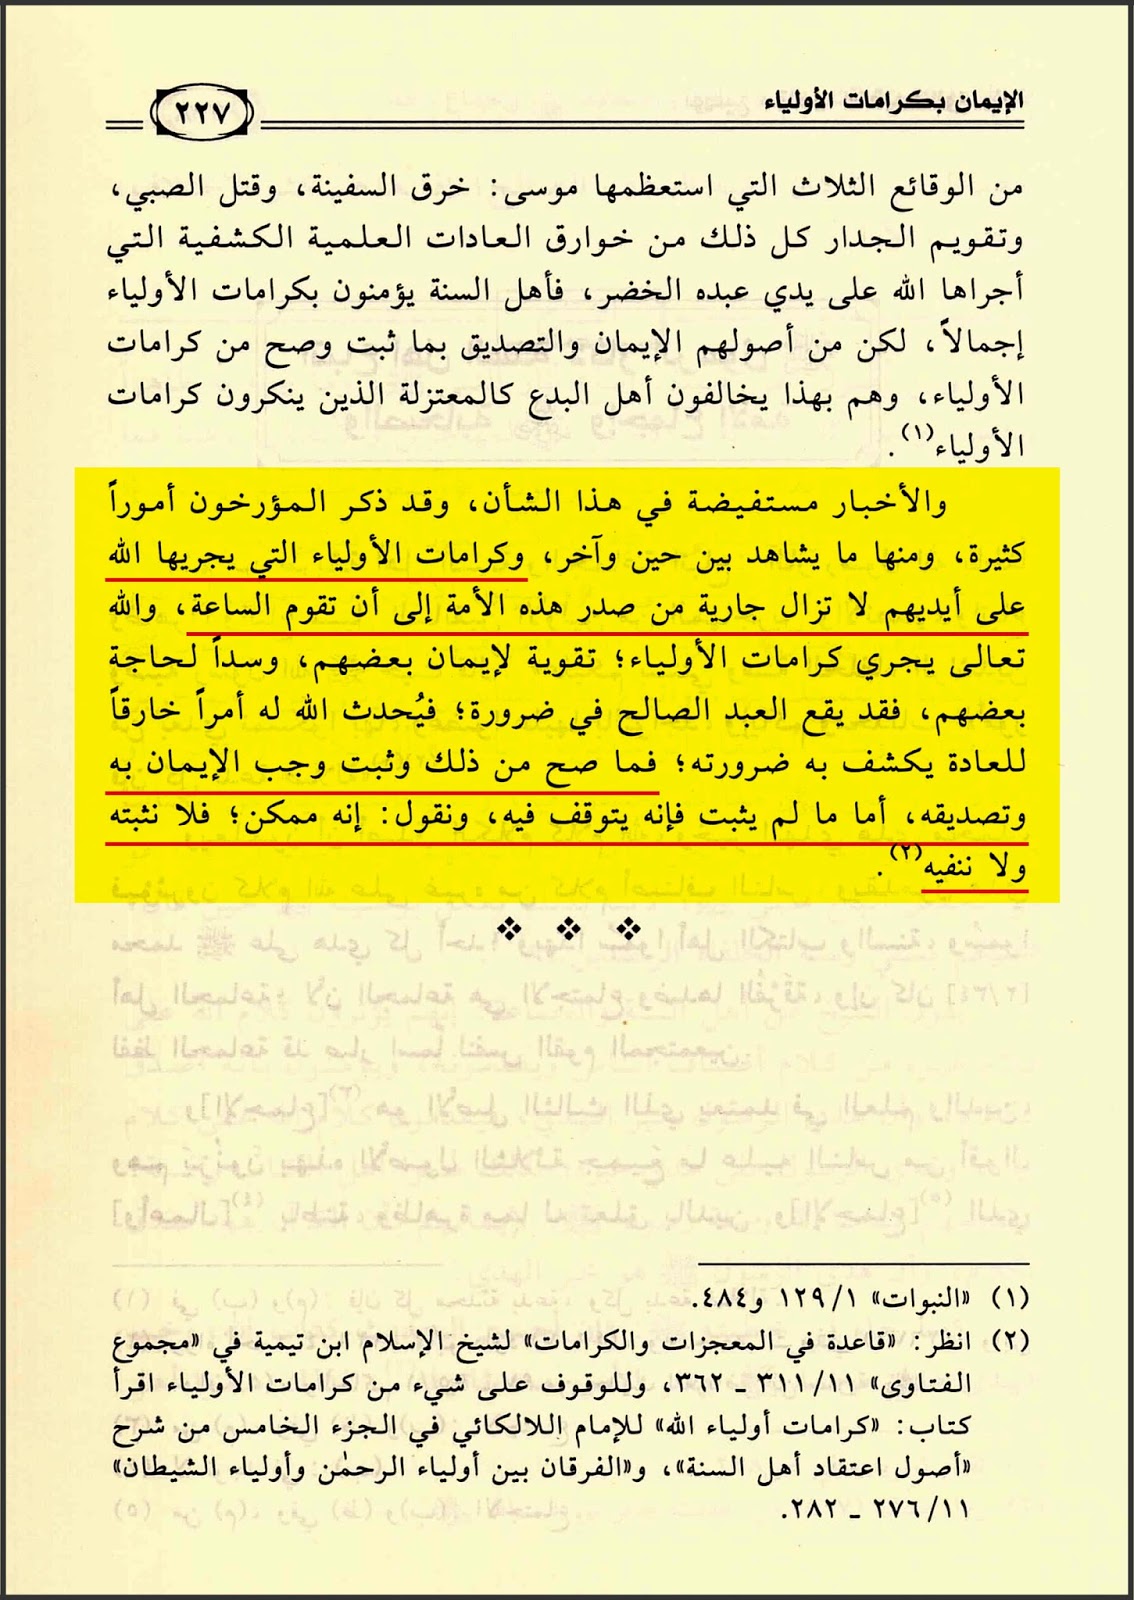 الإيمان بكرامات الأولياء
٢٢٧
من الوقائع الثلاث التي استعظمها موسى: خرق السفينة، وقتل الصبي،
وتقويم الجدار كل ذلك من خوارق العادات العلمية الكشفية التي
أجراها الله على يدي عبده الخضر، فأهل السنة يؤمنون بكرامات الأولياء
إجمالاً، لكن من أصولهم الإيمان والتصديق بما ثبت وصح من كرامات
الأولياء، وهم بهذا يخالفون أهل البدع كالمعتزلة الذين ينكرون كرامات
الأولياء(١).
والأخبار مستفيضة في هذا الشأن، وقد ذكر المؤرخون أموراً
كثيرة، ومنها ما يشاهد بين حين وآخر، وكرامات الأولياء التي يجريها الله
على أيديهم لا تزال جارية من صدر هذه الأمة إلى أن تقوم الساعة، والله
تعالى يجري كرامات الأولياء؛ تقوية لإيمان بعضهم، وسداً لحاجة
بعضهم، فقد يقع العبد الصالح في ضرورة؛ فيُحدث الله له أمراً خارقاً
للعادة يكشف به ضرورته؛ فما صح من ذلك وثبت وجب الإيمان به
وتصديقه، أما ما لم يثبت فإنه يتوقف فيه، ونقول: إنه ممكن؛ فلا نثبته
ولا ننفيه(٢).
(١) «النبوات» ١/ ١٢٩ و٤٨٤.
(٢) انظر: «قاعدة في المعجزات والكرامات» لشيخ الإسلام ابن تيمية في «مجموع
الفتاوى» ١١/ ٣١١ ـ ٣٦٢، وللوقوف على شيء من كرامات الأولياء اقرأ
كتاب: «كرامات أولياء الله» للإمام اللالكائي في الجزء الخامس من شرح
«أصول اعتقاد أهل السنة»، و«الفرقان بين أولياء الرحمٰن وأولياء الشيطان»
١١/ ٢٧٦ ـ ٢٨٢.